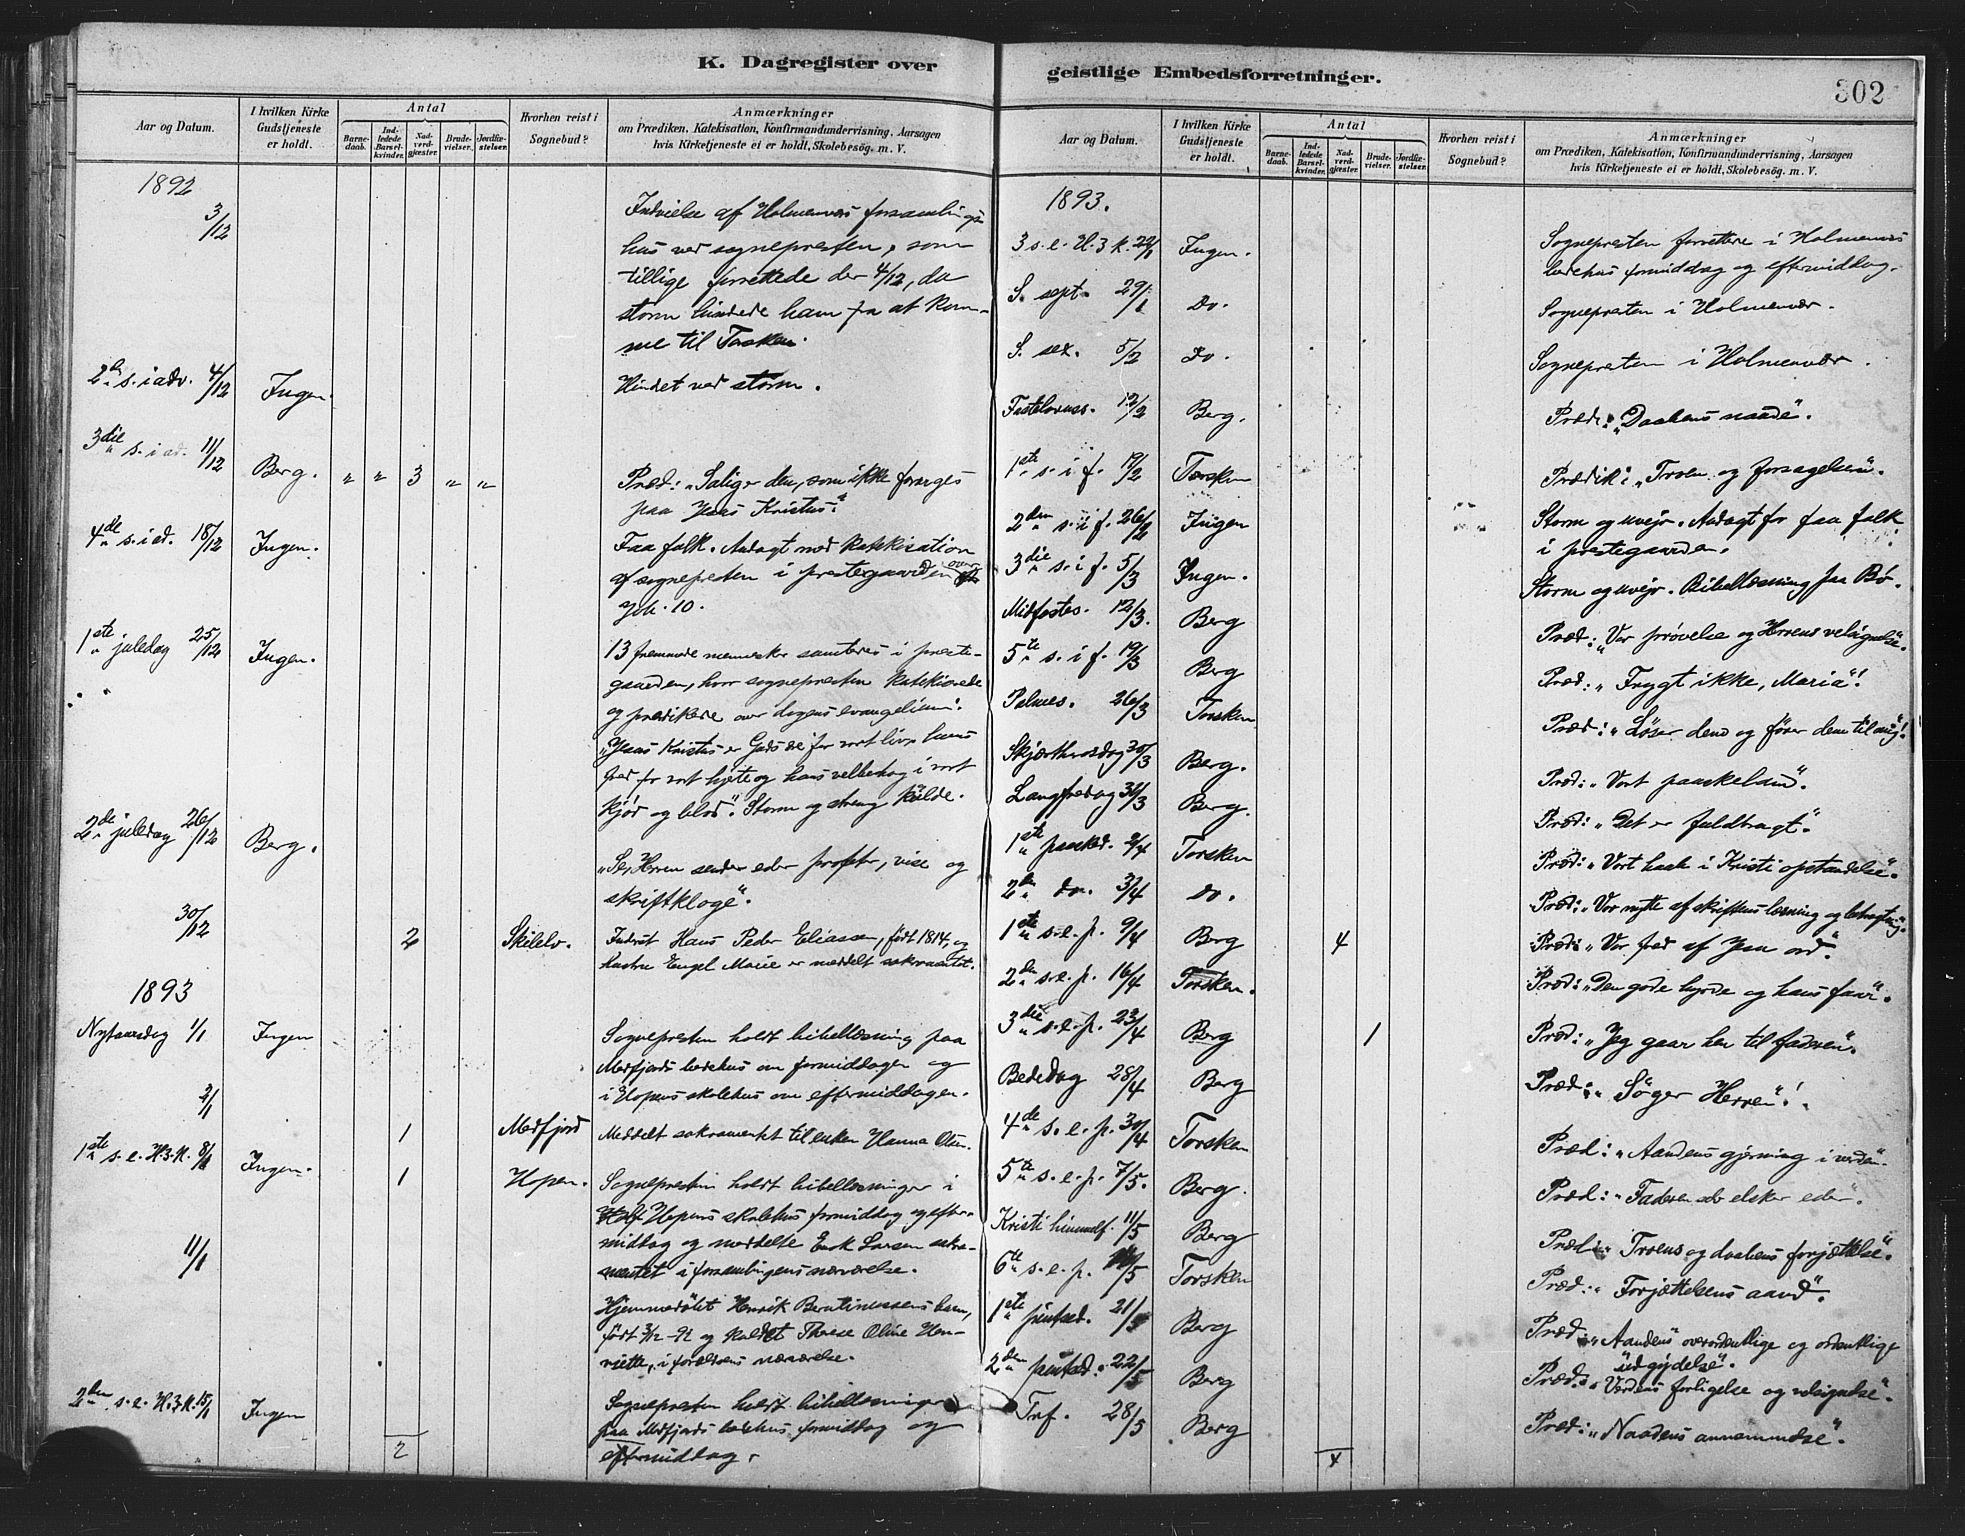 K. Dagregister over
Aar og Datum.
I hvilken Kirke Gudstjeneste er holdt.
Antal
Barne-daab.
Ind-ledede Barsel-kvinder.
Nad-verd-gjæster.
Brude-vielser.
Jordfæ-stelser.
Hvorhen reist i Sognebud?
Anmærkninger
om Prædiken, Katekisation, Konfirmandundervisning, Aarsagen
hvis Kirketjeneste ei er holdt, Skolebesög. m. V.
1892
3/12
Indvielse af Holmenvers forsamlings
hus ved sognepresten, som
tillige forrettede der 4/12, da
storm hindrede ham fra at kom-
me til Torsken.
2den s. i adv. 4/12 Ingen. Hindret ved storm.
3die s. i ad. 11/12 Berg. " " 3 " " Præd: "Salig er den, som ikke forarges
paa Jesus Kristus."
4de s. i ad. 18/12 Ingen. Faa folk. Andagt med katekisation
af sognepresten i prestegaarden over
Joh. 10.
1ste juledag 25/12 Ingen. 13 fremmede mennesker samledes i preste-
gaarden, hvor sognepresten katekiserede
og prædikede over dagens evangelium:
"Jesus Kristus er Guds ære for vort liv, hans
fred for vort hjerte og hans velbehag i vort
kjød og blod". Storm og streng kulde.
2den juledag 26/12 Berg. "Se, Herren sender eder profeter, vise og
skriftkloge".
30/12 2 Skilelv. Inderst Hans Peder Eliassen, født 1814, og
hustru Engel Marie er meddelt sakramentet.
1893
Nytaarsdag 1/1 Ingen Sognepresten holdt bibellæsning paa
Mefjords bedehus om formiddagen og
i Hopens skolehus om eftermiddagen.
2/1 1 Mefjord Meddelt sakramentet til enken Hanna Olsen.
1ste s. e. H. 3. K. 8/1 Ingen. 1 Hopen. Sognepresten holdt bibellæsninger i
Hopens skolehus formiddag og efter-
middag og meddelte Enok Larsen sakra-
mentet i forsamlingens nærværelse.
11/1
Hjemmedøbt Henrik Berntinussens barn,
født 3/12-92 og kaldet Therese Oline Hen-
riette, i forældrenes nærværelse.
2den s. e. H. 3. K. 15/1 Ingen Sognepresten holdt bibellæsninger
paa Mefjords bedehus formiddag og
eftermiddag.
2
geistlige Embedsforretninger.
302
Aar og Datum.
I hvilken Kirke Gudstjeneste er holdt.
Antal
Barne-daab.
Ind-ledede Barsel-kvinder.
Nad-verd-gjæster.
Brude-vielser.
Jordfæ-stelser.
Hvorhen reist i Sognebud?
Anmærkninger
om Prædiken, Katekisation, Konfirmandundervisning, Aarsagen
hvis Kirketjeneste ei er holdt, Skolebesög. m. V.
1893.
3 s. e. H. 3 K. 22/1 Ingen. Sognepresten forrettere i Holmenvers
bedehus formiddag og eftermiddag.
S. sept. 29/1 do. Sognepresten i Holmenvær.
S. sex. 5/2 do. Sognepresten i Holmenvær.
Fastelavnss. 12/2 Berg. Præd: "Daabens naade".
1ste s. i f. 19/2 Torsken Prædik: "Troen og forsagelsen".
2den s. i f. 26/2 Ingen Storm og uvejr. Andagt for faa folk
i prestegaarden.
3die s. i f. 5/3 Ingen. Storm og uvejr. Bibellæsning paa Bø.
Midfastes. 12/3. Berg Præd: "Vor prøvelse og Herrens velsignelse".
5te s. i f. 19/3 Berg Præd: "Frygt ikke, Maria"!
Palmes. 26/3 Torsken Præd: "Løser dem og fører dem til mig"!
Skjærthorsdag 30/3 Berg. Præd: "Vort paaskelam".
Langfredag 31/3 Berg. Præd: "Det er fuldbragt".
1ste paasked. 2/4 Torsken Præd: "Vort haab i Kristi opstandelse".
2den do. 3/4 do. Præd: "Vor nytte af skriftens læsning og betragtning".
1ste s. e. p. 9/4 Berg 4 Præd: "Vor fred af Jesu ord".
2den s. e. p. 16/4 Torsken. Præd: "Den gode hyrde og hans faar".
3die s. e. p. 23/4 Berg 1 Præd: "Jeg gaar hen til faderen".
Bededag 28/4 Berg Præd: "Søger Herren"!
4de s. e. p. 30/4 Torsken Præd: "Aandens gjerning i verden".
5te s. e. p. 7/5. Berg. Præd: "Faderen elsker eder".
Kristi himmelf. 11/5 Berg Præd: "Troens og daabens forjættelse".
6te s. e. p. 14/5 Torsken Præd: "Forjættelsens aand".
1ste pintsed. 21/5 Berg Præd: "Aandens overordentlige og ordentlige
udgydelse".
2den pintsed. 22/5 Berg Præd: "Verdens forligelse og velsignelse".
Tref. 28/5 Berg Præd: "Naadens annammelse".
4